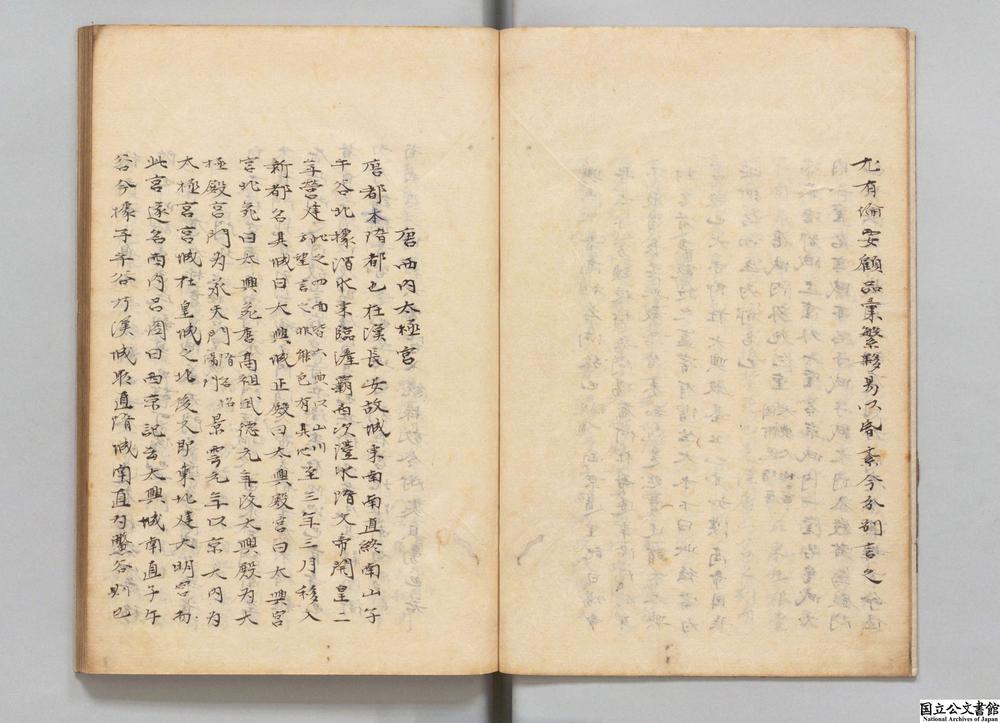 尤有倫要顧品彙繁夥易以昏紊今分別言之
唐西内太極宮
唐都本隋都也在漢長安故城東南南直終南山子
午谷北據渭水東臨滻灞西次灃水隋文帝開皇二
年營建此之四面皆六典以山川所望言之非縣邑有其地至三年三月移入
新都名其城曰大興城正殿曰太興殿宮曰太興宮
宮北苑曰太興苑唐高祖武德元年改太興殿為太
極殿宮門為承天門隋名昭陽門景雲元年以京大内為
太極宮宮城在皇城之北後又即東北建大明宮
此宮遂名西内呂圖曰西京記云太興城南直子午
谷今據子午谷乃漢城所直隋城南直鱉谷則已
国立公文書館
National Archives of Japan